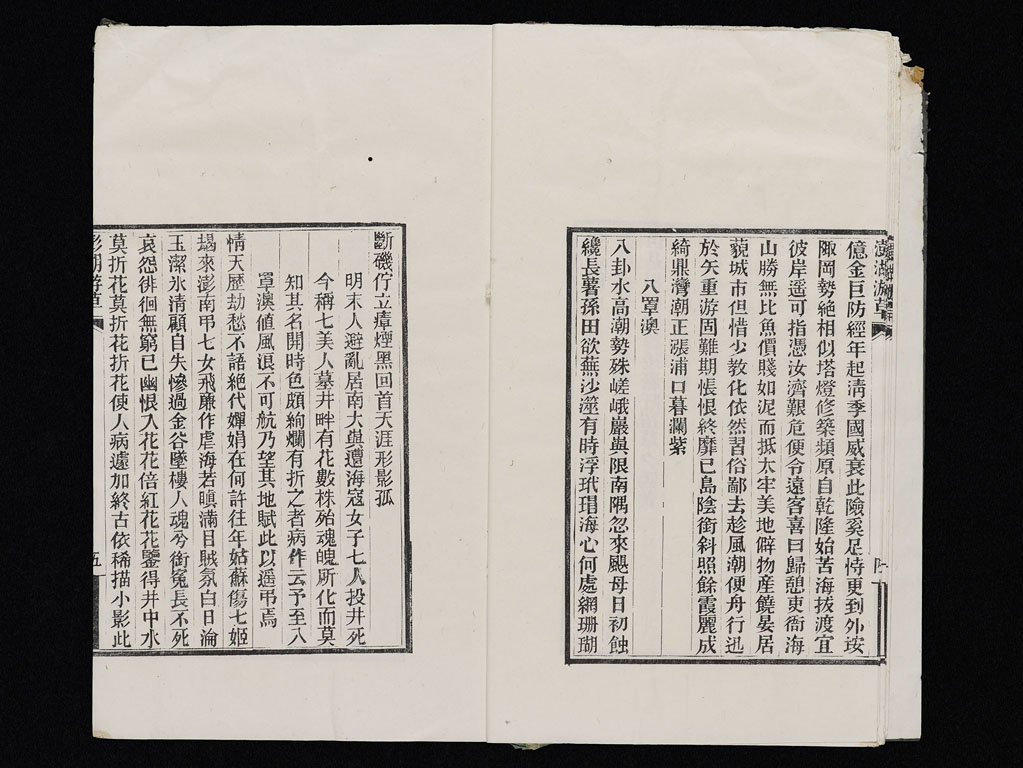 澎湖游草
億金巨防經年起淸季國威衰此險奚足恃更到外垵
陬岡勢絶相似塔燈修築頻原自乾隆始苦海拔渡宜
彼岸遥可指憑汝濟艱危便令遠客喜曰歸憩東衙海
山勝無比魚價賤如泥而抵太牢美地僻物産饒晏居
藐城市但惜少教化依然習俗鄙去趁風潮便舟行迅
於矢重游固難期悵恨終靡已島陰銜斜照餘霞麗成
綺鼎灣潮正漲浦口暮瀾紫
八罩澳
八卦水高潮勢殊嵯峨巖與限南隅忽來颶母日初蝕
纔長薯孫田欲蕪沙澨有時浮玳瑁海心何處網珊瑚
斷磯佇立瘴煙黑回首天涯形影孤
明末人避亂居南大嶼遭海寇女子七人投井死
今稱七美人墓井畔有花數株殆魂魄所化而莫
知其名開時色頗絢爛有折之者病作云予至八
罩澳値風浪不可航乃望其地賦此以遥弔焉
情天歷劫愁不語絶代嬋娟在何許往年姑蘇傷七姬
朅來澎南弔七女飛廉作虐海若瞋滿目賊氛白日淪
玉潔氷淸顧自失慘過金谷墜樓人魂兮銜冤長不死
哀怨徘徊無窮已幽恨入花花倍紅花花鑒得井中水
莫折花莫折花折花使人病遽加終古依稀描小影此
澎湖游草
五